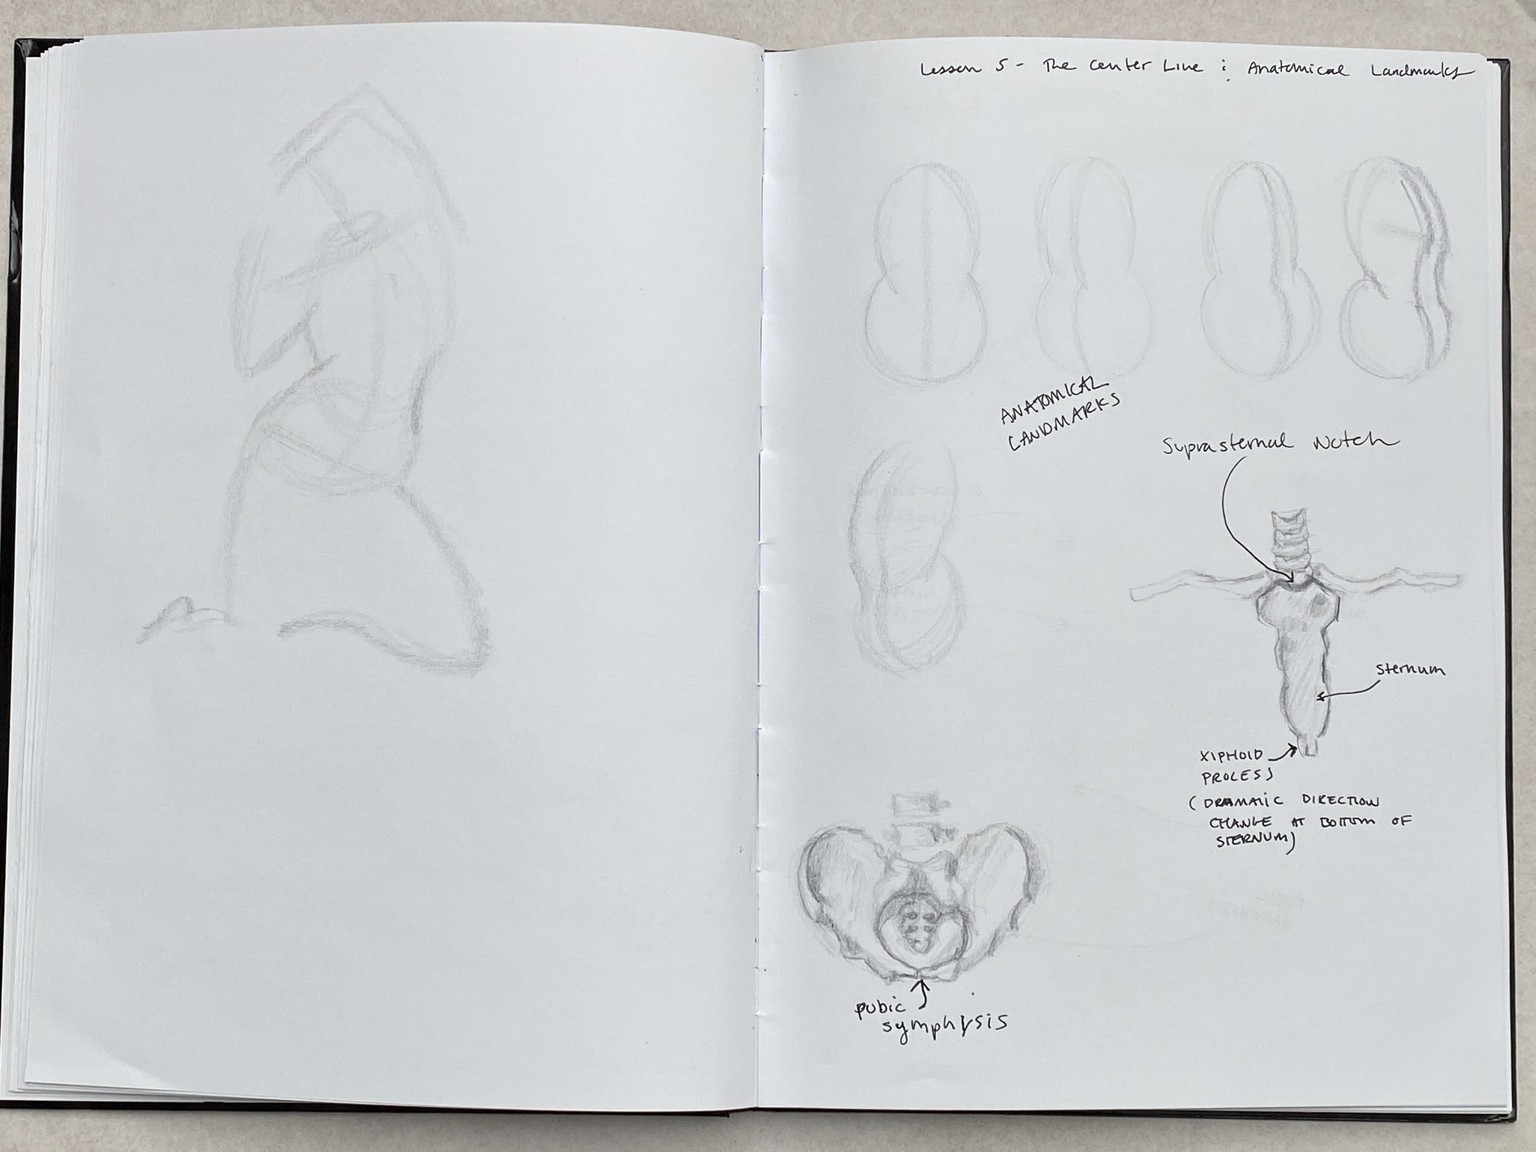 Lesson 5 - The Center Line & Anatomical Landmarks
ANATOMICAL
LANDMARKS
Suprasternal Notch
sternum
XIPHOID
PROCESS
(DRAMATIC DIRECTION
CHANGE AT BOTTOM OF
STERNUM)
pubic
symphysis